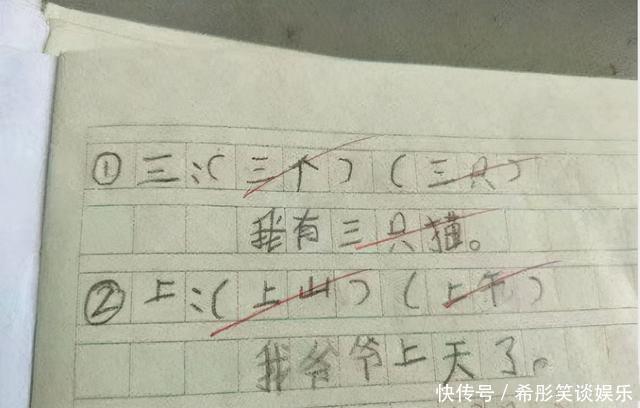 ① 三:(三个)(三只)
我有三只猫。
② 上:(上山)(上午)
我爷爷上天了。
快传号/希彤笑谈娱乐